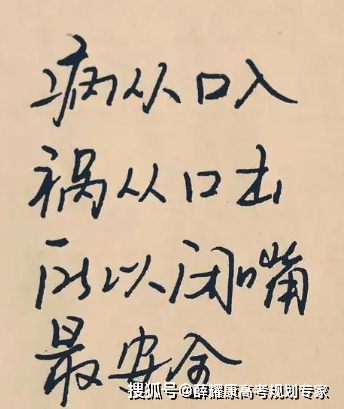 病从口入
祸从口出
所以闭嘴
最安全
搜狐号@薛耀康高考规划专家